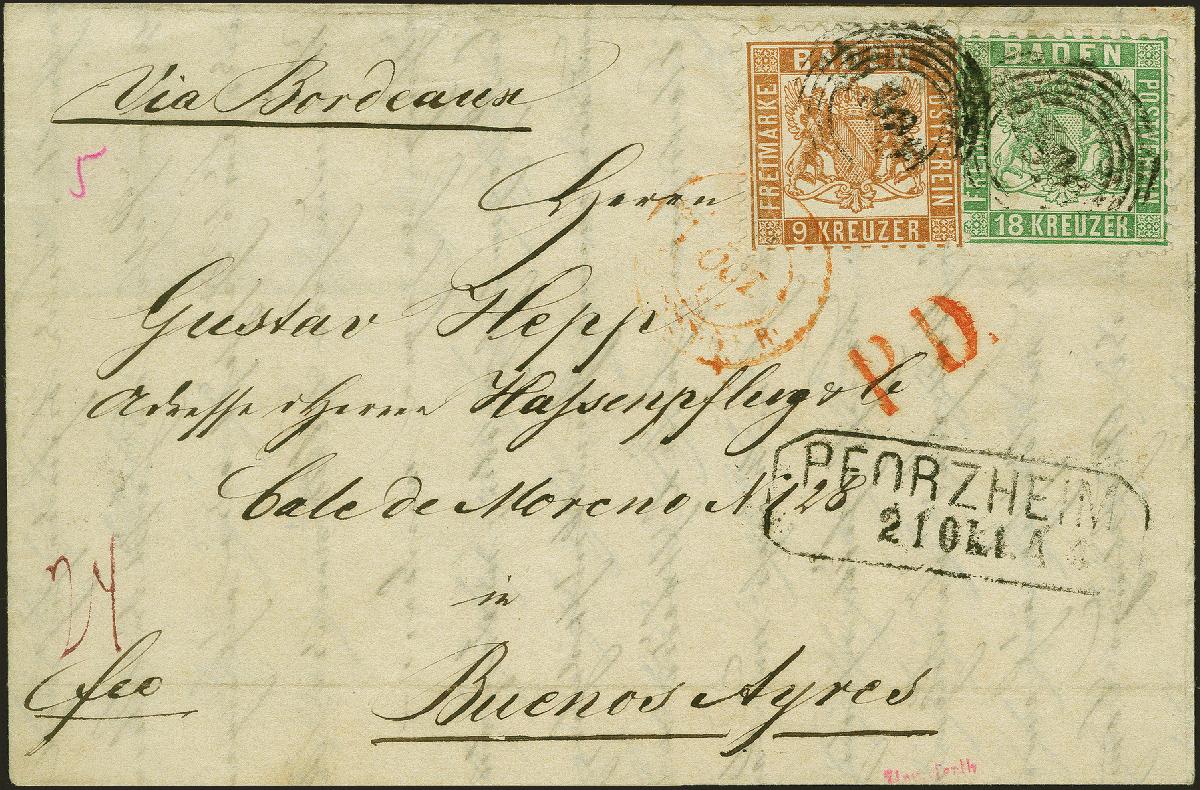 Via Bordeaux
5
BADEN
FREIMARKE
POSTVEREIN
9 KREUZER
BADEN
FREIMARKE
POSTVEREIN
18 KREUZER
Herrn
Gustav Hepp
P.D.
Adresse Herren Hassenpflug & Co
Cale de Moreno N 128
PFORZHEIM
21 Okt. 4
24
in
fco
Buenos Ayres